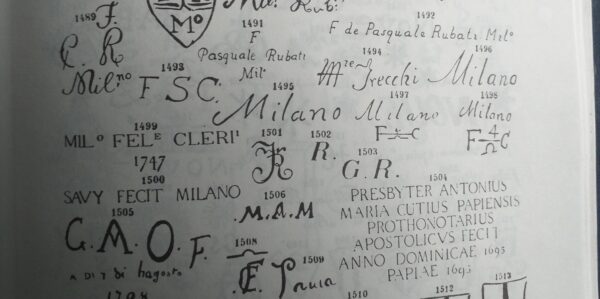 Mº
1489 F.
C. R
Milⁿº
1491
F
Pasquale Rubati
Milº
1492
F de Pasquale Rubati Milº
1493
F S C.
1494
Grecchi
1495
Milano
1496
Milano
1497
Milano
F C
1498
Milano
F 4 C
Ω
1499
MILº FELᴱ CLERIᶦ
1747
1500
SAVY FECIT MILANO
1501
1502
R.
1503
G. R.
1504
PRESBYTER ANTONIUS
MARIA CUTIUS PAPIENSIS
PROTHONOTARIUS
APOSTOLICVS FECIT
ANNO DOMINICAE 1695
PAPIAE 1695
1505
G. A. O. F.
A DI 7 di hagosto
1798
1506
.M.A.M
1508
.E.
1509
Pavia
1510
1512
1513